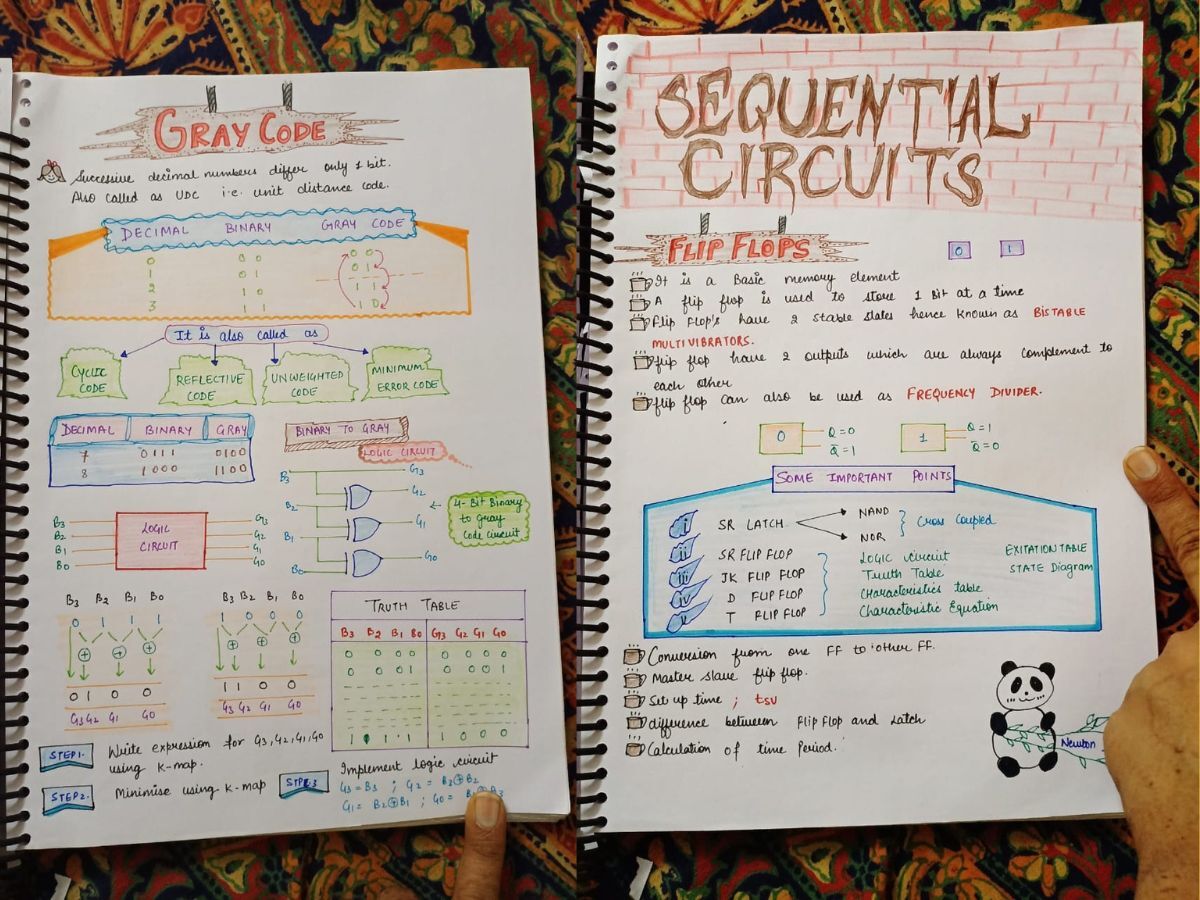 GRAY CODE
Successive decimal numbers differ only 1 bit.
Also called as UDC i.e. unit distance code.
DECIMAL BINARY GRAY CODE
0 00 00
1 01 01
2 10 11
3 11 10
It is also called as
CYCLIC CODE
REFLECTIVE CODE
UNWEIGHTED CODE
MINIMUM ERROR CODE
DECIMAL BINARY GRAY
7 0111 0100
8 1000 1100
BINARY TO GRAY
LOGIC CIRCUIT
B3 G3
B2 G2
B1 G1
B0 G0
4-Bit Binary
to Gray
code circuit
B3 G3
B2 G2
B1 G1
B0 G0
LOGIC
CIRCUIT
B3 B2 B1 B0
0 1 1 1
0 1 0 0
G3 G2 G1 G0
B3 B2 B1 B0
1 0 0 0
1 1 0 0
G3 G2 G1 G0
TRUTH TABLE
B3 B2 B1 B0 G3 G2 G1 G0
0 0 0 0 0 0 0 0
0 0 0 1 0 0 0 1
1 1 1 1 1 0 0 0
STEP1. Write expression for G3,G2,G1,G0
using K-map.
STEP2. Minimise using K-map
STPE3 Implement logic circuit
G3 = B3 ; G2 = B3⊕B2
G1 = B2⊕B1 ; G0 =
SEQUENTIAL
CIRCUITS
FLIP FLOPS
0 1
It is a Basic memory element
A flip flop is used to store 1 Bit at a time
Flip Flop's have 2 stable states hence known as BISTABLE
MULTIVIBRATORS.
flip flop have 2 outputs which are always complement to
each other
flip flop can also be used as FREQUENCY DIVIDER.
0 Q = 0
Q̅ = 1
1 Q = 1
Q̅ = 0
SOME IMPORTANT POINTS
i SR LATCH NAND
NOR
Cross Coupled
ii SR FLIP FLOP
iii JK FLIP FLOP
iv D FLIP FLOP
v T FLIP FLOP
LOGIC circuit
Truth Table
Characteristics table
Characteristic Equation
EXITATION TABLE
STATE Diagram
Conversion from one FF to other FF.
Master slave flip flop.
Set up time ; tsu
difference between Flip Flop and Latch
Calculation of time Period.
Newton